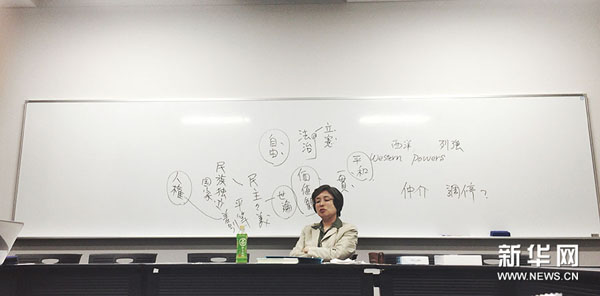 立憲
法治
自由
平和
人権
民族独立
国家
民主主義
平等
世論
価値観
西洋 列強
Western Powers
仲介 調停?
新华网
WWW.NEWS.CN